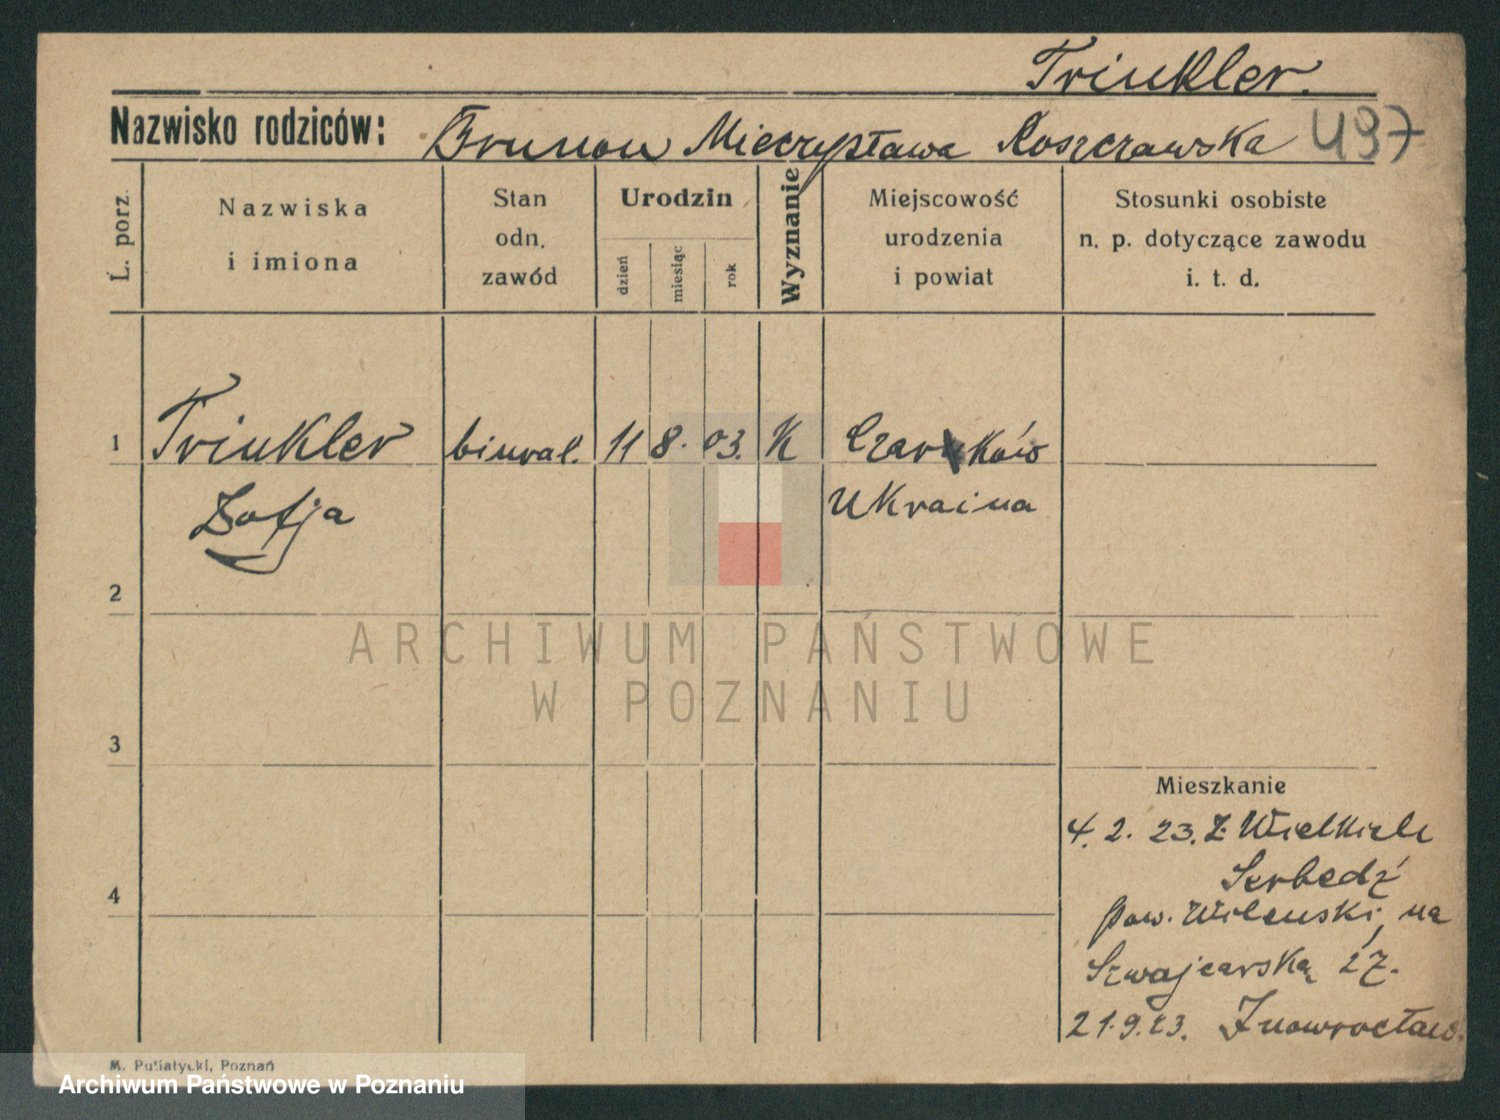 Trinkler.
Nazwisko rodziców: Brunon Mieczysława Koszczawska 497
L. porz.
Nazwiska
i imiona
Stan
odn.
zawód
Urodzin
dzień
miesiąc
rok
Wyznanie
Miejscowość
urodzenia
i powiat
Stosunki osobiste
n. p. dotyczące zawodu
i. t. d.
1 Trinkler biural. 11 8. 03. K Czarnków
Zofja Ukraina
2
ARCHIWUM PAŃSTWOWE
W POZNANIU
3
Mieszkanie
4. 2. 23. z Wielkiele
Serbedź
4
pow. Wilenski, na
Szwajcarską 17.
21.9.23. Inowrocław.
M. Putiatycki, Poznań
Archiwum Państwowe w Poznaniu